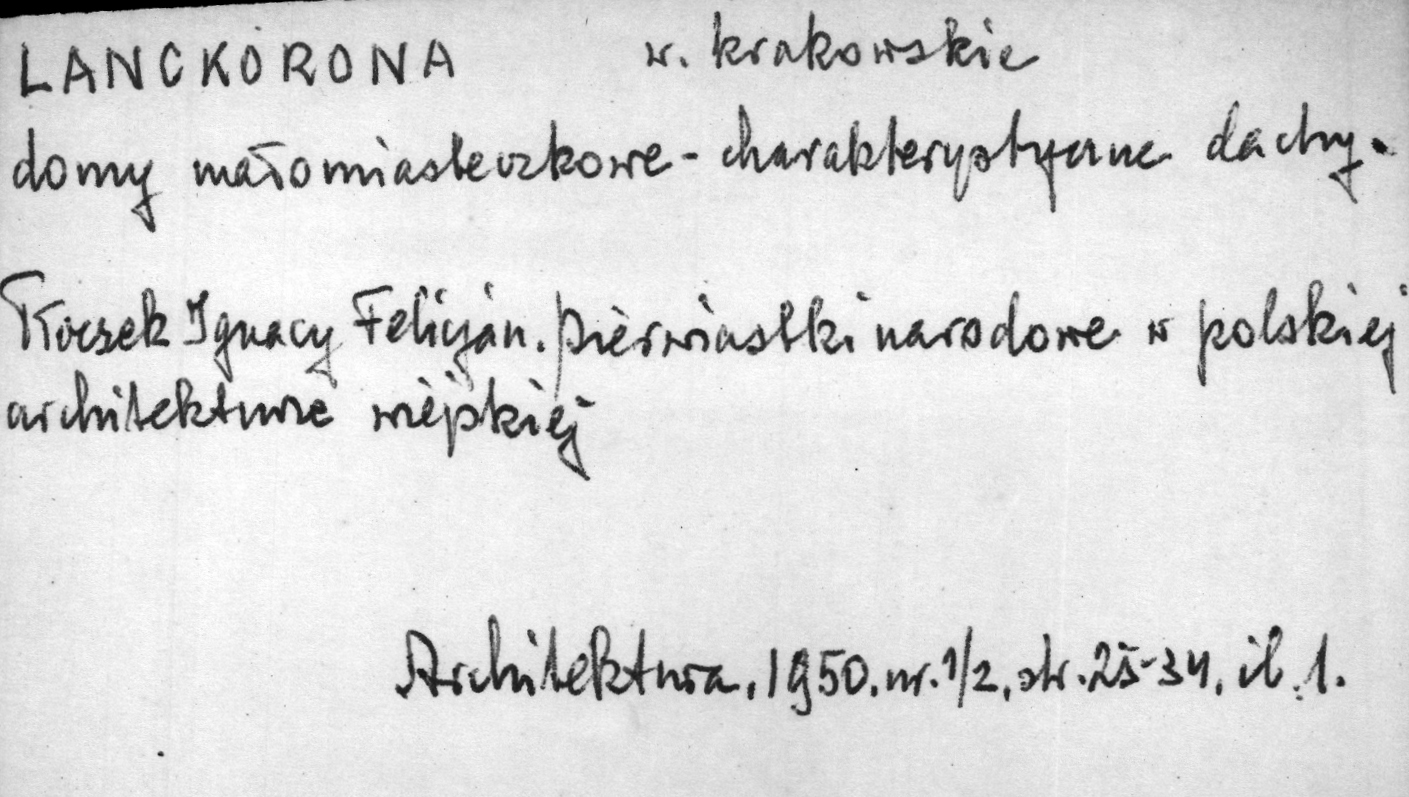 LANCKORONA w. krakowskie
domy małomiasteczkowe - charakterystyczne dachy.
Tłoczek Ignacy Felicjan. pierwiastki narodowe w polskiej
architekturze wiejskiej
Architektura, 1950. nr. 1/2, str. 25-34, il. 1.